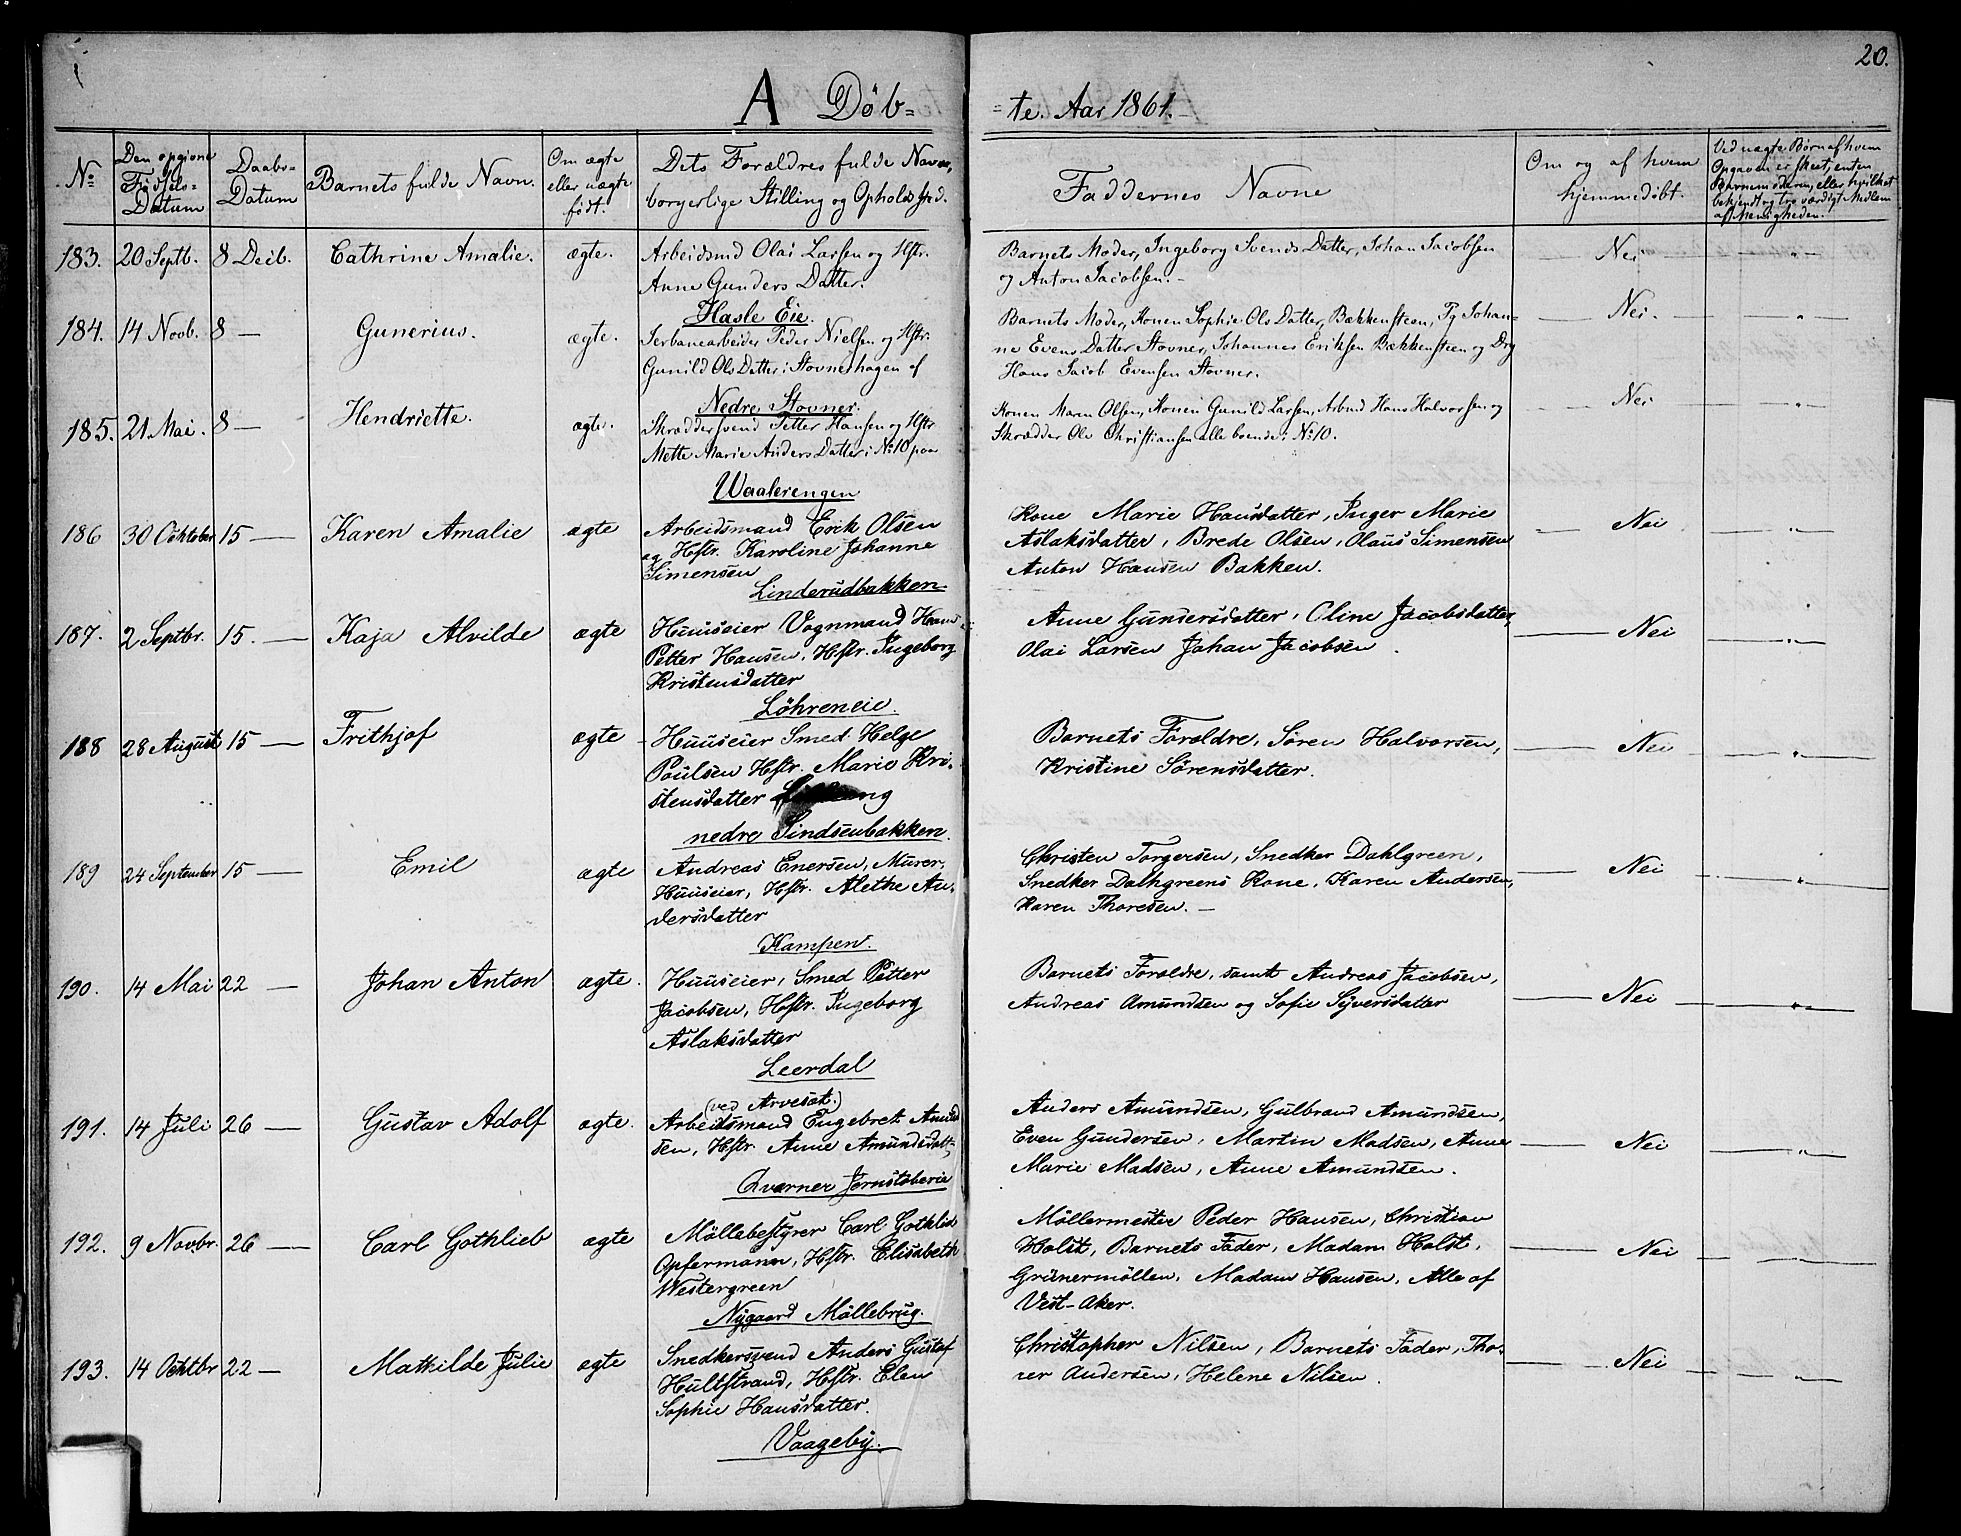 20.
A Döb=
=te. Aar 1861.
No
Den opgivne Födsels-Datum
Daabs-Datum
Barnets fulde Navn.
Om ægte eller uægte født.
Dets Forældres fulde Navne, borgerlige Stilling og Opholdssted.
Faddernes Navne
Om og af hvem hjemmedöbt.
Ved uægte Børn af hvem Opgaven er skeet, enten Barnemoderen, eller hvilket bekjendt og troværdigt Medlem af Menigheden.
183. 20 Septb. 8 Decb. Cathrine Amalie. ægte. Arbeidsmd Olai Larsen og Hstr.
Anne Gunders Datter.
Hasle Eie.
Barnets Moder, Ingeborg Svends Datter, Johan Jacobsen
og Anton Jacobsen.-
Nei
184. 14 Novb. 8 — Gunerius. ægte. Jerbanearbeider Peder Nielsen og Hstr.
Gunild Ols Datter i Stovnerhagen af
Nedre Stovner.
Barnets Moder, Konen Sophie Ols Datter, Bækkensteen, Pg Johan=
ne Evens Datter Stovner, Johannes Eriksen Bækkensteen og Drg
Hans Jacob Evensen Stovner.
Nei.
185. 21 Mai. 8 — Hendriette. ægte. Skræddersvend Petter Hansen og Hstr
Mette Marie Anders Datter i No 10 paa
Waalerengen
Konen Maren Olsen, Konen Gunild Larsen, Arbmd Hans Halvorsen og
Skrædder Ole Christiansen alle boende i No 10.
Nei
186 30 Ocktober 15 — Karen Amalie ægte Arbeidsmand Erik Olsen
og Hstr. Karoline Johanne
Simensen
Linderudbakken
Kone Marie Hansdatter, Inger Marie
Aslaksdatter, Brede Olsen, Olaus Simensen
Anton Hansen Bakken.
Nei
187. 2 Septbr. 15. — Kaja Alvilde ægte Huuseier Vognmand Hans
Petter Hansen, Hstr. Ingeborg
Kristensdatter
Löhreneie.
Anne Gundersdatter, Oline Jacobsdatter,
Olai Larsen Johan Jacobsen.
Nei
188 28 August 15 — Frithjof ægte Huuseier Smed Helge
Poulsen Hstr. Marie Kri-
stensdatter
nedre Sindsenbakken.
Barnets Foroldre, Sören Halvorsen,
Kristine Sörensdatter.
Nei
189 24 September 15 — Emil ægte Andreas Enersen, Murer,
Huuseier, Hstr. Alethe An-
dersdatter
Kampen.
Christen Torgersen, Snedker Dahlgreen,
Snedker Dalhgreens Kone, Karen Andersen,
Karen Thoresen. —
Nei
190. 14 Mai 22 — Johan Anton ægte. Huuseier, Smed Petter
Jacobsen, Hstr. Ingeborg
Aslaksdatter
Leerdal
Barnets Foroldre, samt Andreas Jacobsen,
Andreas Amundsen og Sofie Syversdatter
Nei
191. 14 Juli 26 — Gustav Adolf ægte. (ved Arvesat.)
Arbeidsmand Engebret Amund
sen, Hstr. Anne Amundsdatt.
Qværner Jernstöberie
Anders Amundsen, Gulbrand Amundsen,
Even Gundersen, Martin Madsen, Anne
Marie Madsen, Anne Amundsen.
Nei
192. 9 Novbr. 26 — Carl Gothlieb ægte Möllebestyrer Carl Gothlieb
Opfermann, Hstr. Elisabeth
Westergreen
Nygaard Möllebrug.
Möllermester Peder Hansen, Christian
Holst, Barnets Fader, Madam Holst,
Grünermöllen, Madam Hansen, Alle af
Vest-Aker.
Nei
193. 14 Ocktbr 22 — Mathilde Julie ægte Snedkersvend Anders Gustaf
Hultstrand, Hstr. Elen
Sophie Hansdatter.
Vaageby.
Christopher Nilsen, Barnets Fader, Tho-
rer Andersen, Helene Nilsen.
Nei